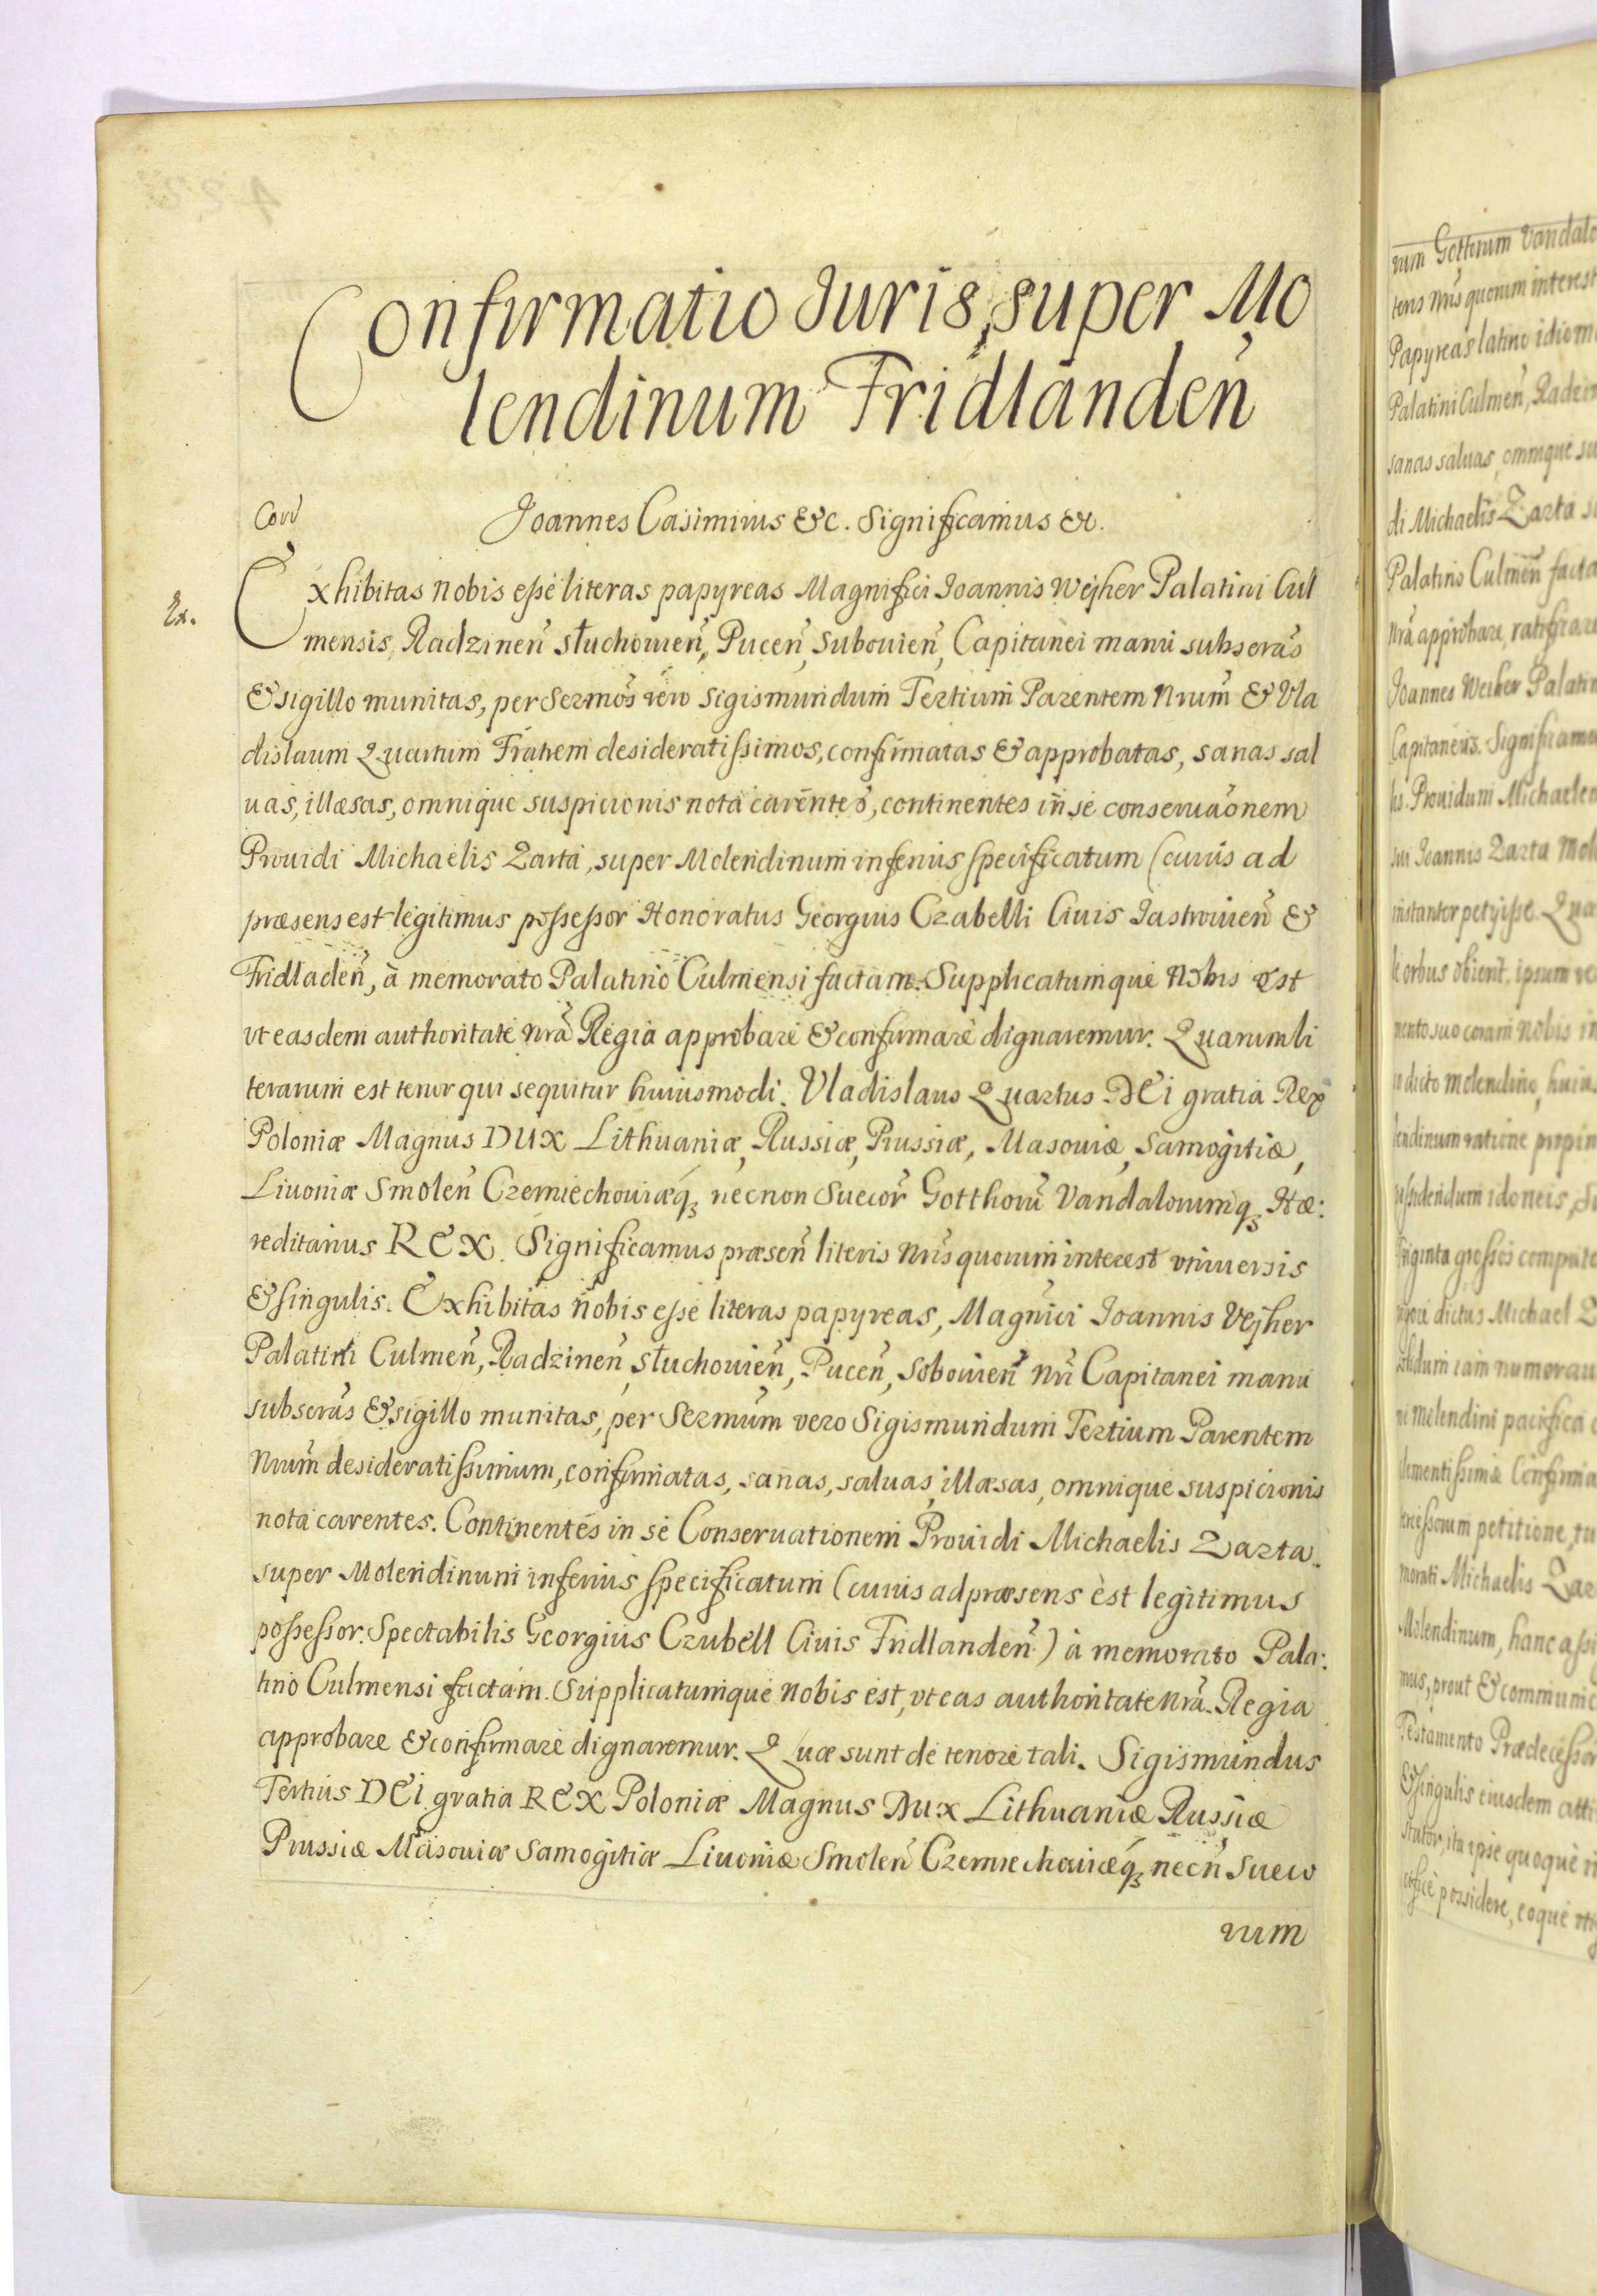 Confirmatio Juris, super Mo
lendinum Fridlanden̄
Corr
Joannes Casimirus &c. Significamus &c.
Ex.
Exhibitas nobis esse literas papyreas Magnifici Joannis Wejher Palatini Cul
mensis, Radzinen̄ słuchouien̄, Pucen̄, Subouien̄, Capitanei manu subscrãs
& sigillo munitas, per Sermõs vero Sigismundum Tertium Parentem Nrũm & Vla
dislaum Quartum Fratrem desideratissimos, confirmatas & approbatas, sanas sal
uas, illæsas, omnique suspicionis nota carentes, continentes in se conseruãonem
Prouidi Michaelis Zarta, super Molendinum inferius specificatum (cuius ad
præsens est legitimus possessor Honoratus Georgius Czabelli Ciuis Jastrouien̄ &
Fridladen̄, à memorato Palatino Culmensi factam. Supplicatumque Nobis est
vt easdem authoritate nrã Regia approbare & confirmare dignaremur. Quarum li
terarum est tenor qui sequitur huiusmodi. Vladislaus Quartus DEI gratia Rex
Poloniæ Magnus DUX Lithuaniæ, Russiæ, Prussiæ, Masouiæ, Samogitiæ,
Liuoniæ Smolen̄ Czerniechouiæq₃ necnon Suecor̄ Gotthorũ Vandalorumq₃ Hæ:
reditarius REX. Significamus præsen̄ literis nrĩs quorum interest vniuersis
& singulis. Exhibitas nobis esse literas papyreas, Magnĩci Joannis Vejher
Palatini Culmen̄, Radzinen̄ słuchouien̄, Pucen̄, Sobouien̄ nrĩ Capitanei manu
subscrãs & sigillo munitas, per Sermũm vero Sigismundum Tertium Parentem
Nrũm desideratissimum, confirmatas, sanas, saluas, illæsas, omnique suspicionis
nota carentes. Continentes in se Conseruationem Prouidi Michaelis Zarta.
super Molendinum inferius specificatum (cuius ad præsens est legitimus
possessor. Spectabilis Georgius Czubell Ciuis Fridlanden̄) à memorato Pala:
tino Culmensi factam. Supplicatumque nobis est, vt eas authoritate Nrã Regia
approbare & confirmare dignaremur. Quæ sunt de tenore tali. Sigismundus
Tertius DEI gratia REX Poloniæ Magnus Dux Lithuaniæ Russiæ
Prussiæ Masouiæ Samogitiæ Liuoniæ Smolen̄ Czerniechouiæq₃ necn̄ Sueco
rum
rum Gotthorum Vandalo
Papyreas latino idiom
Palatini Culmen̄, Radzin
sanas saluas, omnique su
di Michaelis Zarta
Palatino Culmen̄ facta
nrã approbare, ratificare
Joannes Weiher Palatin
Capitaneus. Significamu
Prouidum Michaelem
Joannis Zarta Mol
instanter petyisse Qua
orbus obierit, ipsum ve
mento suo coram nobis in
dicto molendino, huiu
lendinum ratione propin
idoneis,
triginta grossos
dictus Michael Z
iam numerau
ne Molendini pacifica
clementissima Confirma
petitione, tu
morati Michaelis Zar
Molendinum, hanc assi
mus, prout & communic
Testamento Prædecessor
& singulis eiusdem atti
ita ipse quoque
possidere, eoque